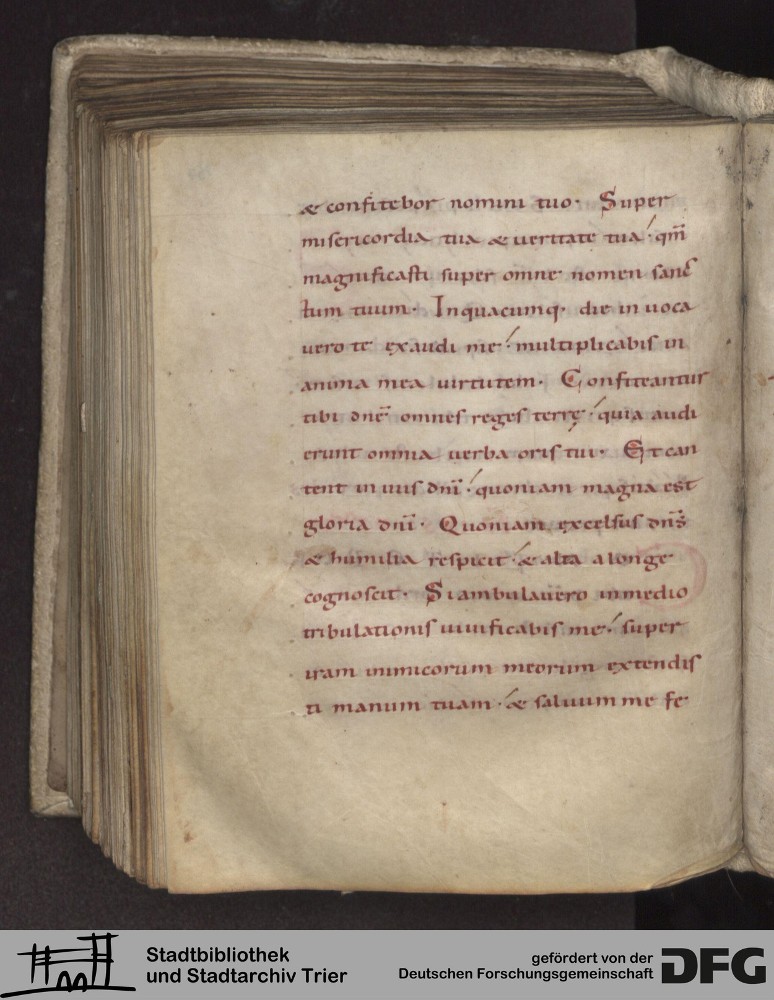 & confitebor nomini tuo· Super
misericordia tua & ueritate tua·́ qm̄
magnificasti super omne nomen sanc
tum tuum· Inquacumq· die inuoca
uero te exaudi me·́ multiplicabis in
anima mea uirtutem· Confiteantur
tibi dn̄e omnes reges terrę·́ quia audi
erunt omnia uerba oris tui· Et can
tent in uiis dn̄i·́ quoniam magna est
gloria dn̄i· Quoniam excelsus dn̄s
& humilia respicit·́ & alta alonge
cognoscit· Si ambulauero inmedio
tribulationis uiuificabis me·́ super
iram inimicorum meorum extendis
ti manum tuam·́ & saluum me fe
Stadtbibliothek
und Stadtarchiv Trier
gefördert von der
Deutschen Forschungsgemeinschaft
DFG